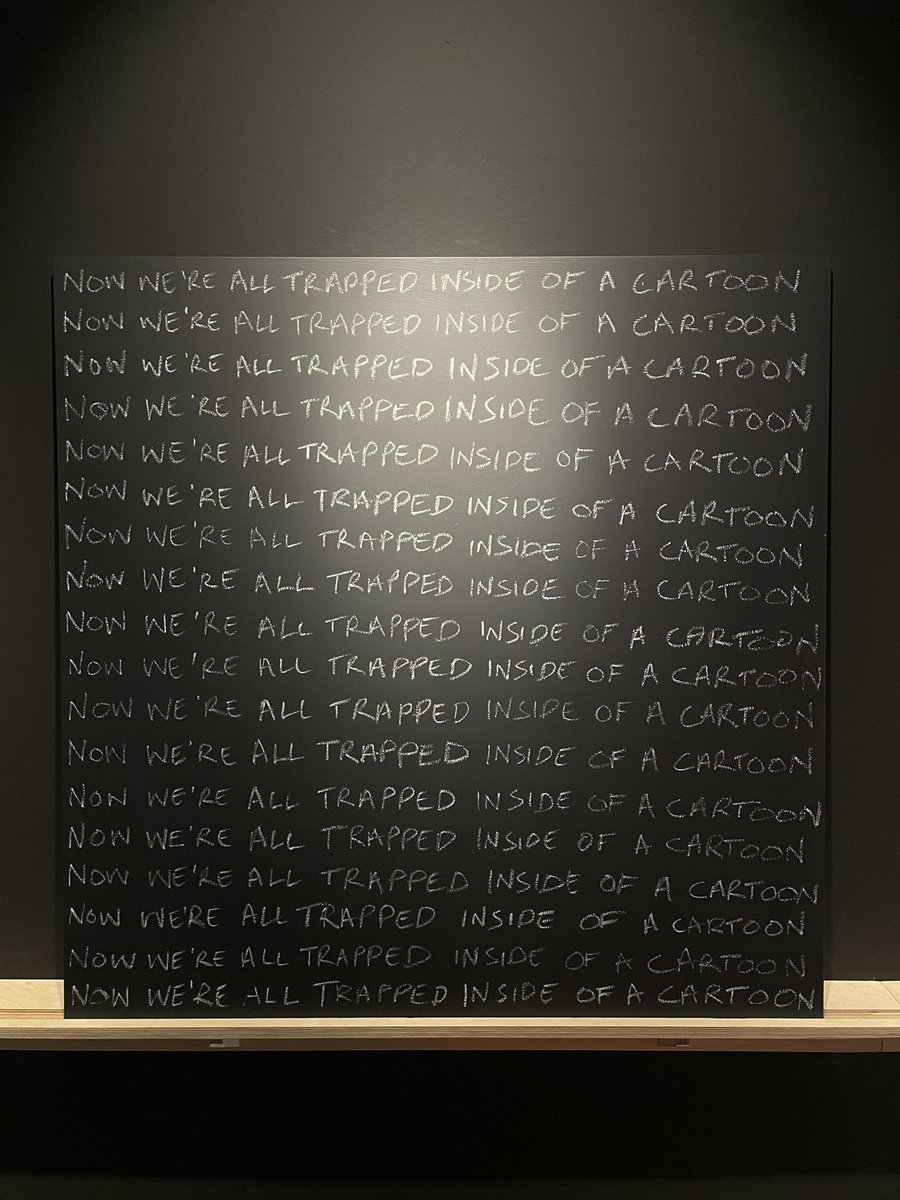 NOW WE'RE ALL TRAPPED INSIDE OF A CARTOON
NOW WE'RE ALL TRAPPED INSIDE OF A CARTOON
NOW WE'RE ALL TRAPPED INSIDE OF A CARTOON
NOW WE'RE ALL TRAPPED INSIDE OF A CARTOON
NOW WE'RE ALL TRAPPED INSIDE OF A CARTOON
NOW WE'RE ALL TRAPPED INSIDE OF A CARTOON
NOW WE'RE ALL TRAPPED INSIDE OF A CARTOON
NOW WE'RE ALL TRAPPED INSIDE OF A CARTOON
NOW WE'RE ALL TRAPPED INSIDE OF A CARTOON
NOW WE'RE ALL TRAPPED INSIDE OF A CARTOON
NOW WE'RE ALL TRAPPED INSIDE OF A CARTOON
NOW WE'RE ALL TRAPPED INSIDE OF A CARTOON
NOW WE'RE ALL TRAPPED INSIDE OF A CARTOON
NOW WE'RE ALL TRAPPED INSIDE OF A CARTOON
NOW WE'RE ALL TRAPPED INSIDE OF A CARTOON
NOW WE'RE ALL TRAPPED INSIDE OF A CARTOON
NOW WE'RE ALL TRAPPED INSIDE OF A CARTOON
NOW WE'RE ALL TRAPPED INSIDE OF A CARTOON